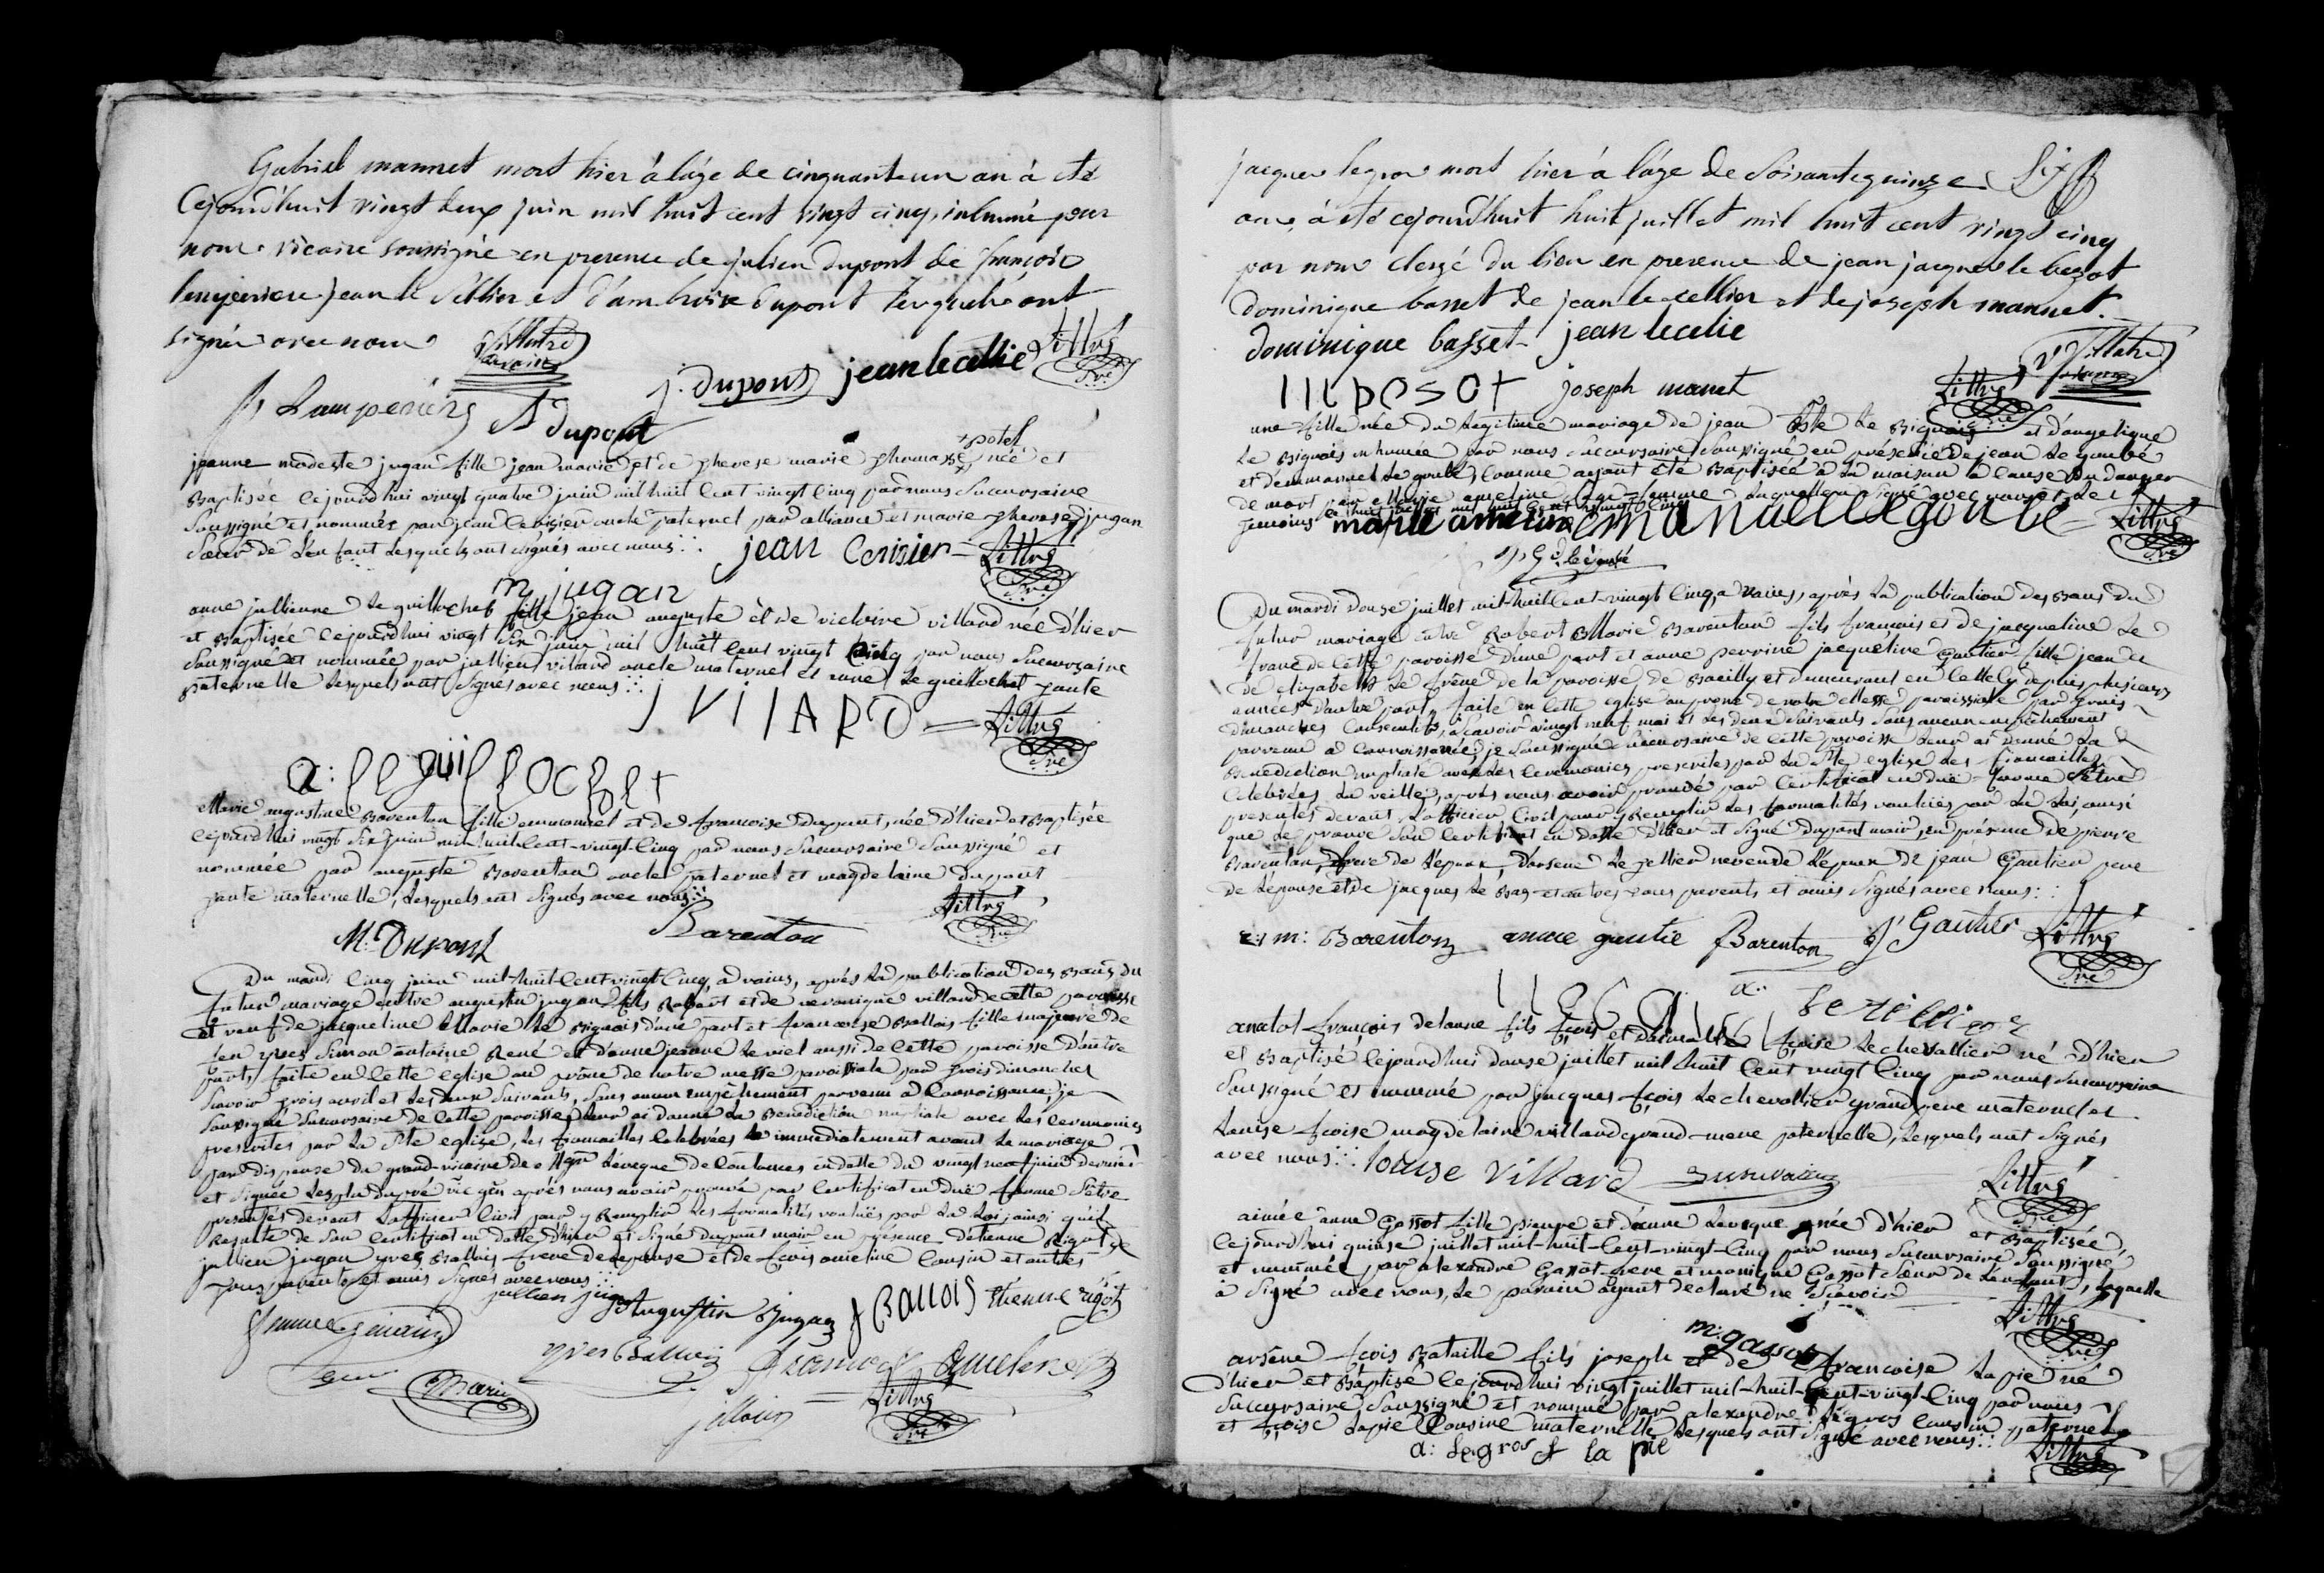 Gabriel mannet mort hier à l'âge de cinquante un an à eté
Cejourd'huit vingt deux juin mil huit cent vingt cinq, inhumé par
nous vicaire soussigné en presence de julien dupont de françois
lempérière jean le sellier et d'ambroise dupont lesquels ont
signés avec nous
j. dupont jean le cellie Littré
Sre
A dupont
+ potel
jeanne modeste jugan fille jean marie et de therese marie thomasse née et
Baptisée cejourd'hui vingt quatre juin mil huit cent vingt cinq par nous succursaire
soussigné et nommée par jean cerisier oncle paternel par alliance et marie therese jugan
sœur de l'enfant lesquels ont signés avec nous jean Cerisier Littré
Sre
m jugan
anne jullienne le guillochet fille jean auguste et de victoire villard née d'hier
et Baptisée cejourd'hui vingt six juin mil huit cent vingt cinq par nous succursaire
soussigné et nommée par jullien villard oncle maternel et anne le guillochet tante
paternelle lesquels ont signés avec nous
J VilARD Littré
Sre
a: le guillochet
Marie augustine Barenton fille emmanuel et de francoise Dupont, née d'hier et Baptisée
cejourd'hui vingt six juin mil huit cent-vingt-cinq par nous succursaire soussigné et
nommée par auguste Barenton oncle paternel et magdelaine Dupont
tante maternelle, lesquels ont signés avec nous
Barenton Littré
Sre
M: Dupont
Du mardi cinq juin mil-huit-cent vingt cinq, à vains, après la publication des Bans du
futur mariage entre augustin jugan fils Robert et de veronique villard de cette paroisse
et veuf de jacqueline Marie le Bignais d'une part et francoise Ballois fille majeure de
feu yves Simon antoine René et d'anne jeanne le viel aussi de cette paroisse d'autre
part, faite en cette eglise au prône de notre messe paroissiale par trois dimanches
savoir trois avril et les deux suivants, sans aucun empêchement parvenu à connoissance, je
soussigné succursaire de cette paroisse leur ai donné la Benediction nuptiale avec les ceremonies
prescrites par la Ste eglise, les fiancailles celebrées immediatement avant le mariage
par dispense du grand-vicaire de Mgr l'eveque de Coutances en datte du vingt neuf juin dernier
et signée après nous avoir prouvé par certificat en duë forme s'être
presentés devant l'officier civil pour y Remplir les formalités vouluës par la loi, ainsi qu'il
Resulte de son certificat en datte d'hier et signé dupont mair en présence d'etienne Rigot de
jullien jugan yves Ballois frere de l'epouse et de fcois ameline cousin et autres
tous parents et amis signés avec nous
jullien jugan Augustin Jugan f BAllOiS Etienne rigot
yves Ballois francois ameline
Marie
Littré
Sre
jacques legros mort hier à l'âge de soisante quinze
ans, à eté cejourd'huit huit juillet mil huit cent vingt cinq
par nous clergé du lieu en presence de jean jacques le bezot
dominique basset de jean le cellier et de joseph mannet.
dominique basset jean le celie
joseph manet Littré
Sre
une fille née du legitime mariage de jean Bte le Bignais et d'angelique
le Bignais inhumée par nous succursaire soussigné en présence de jean le goubé
et d'emmanuel le goubé, comme ayant été Baptisée à la maison à cause du danger
de mort par Marie ameline sage-femme laquelle a signé avec nous et les
temoins ce huit juillet mil huit cent vingt cinq
marie ameline emanuelle goubé Littré
Sre
Du mardi douse juillet mil-huit-cent-vingt cinq, à vains, après la publication des Bans du
futur mariage entre Robert Marie Barenton fils francois et de jacqueline le
franc de cette paroisse d'une part et anne perrine jacqueline Gautier fille jean et
de elizabeth le frêne de la paroisse de Bacilly et demeurant en celle cy depuis plusieurs
années d'autre part, faite en cette eglise au prone de notre Messe paroissiale par trois
dimanches consecutifs, à savoir vingt neuf mai et les deux suivants sans aucun empêchement
parvenu à connoissance, je soussigné succursaire de cette paroisse leur ai donné la
Benediction nuptiale avec les ceremonies prescrites par la Ste eglise les fiancailles
celebrées la veille, après nous avoir prouvé par certificat en duë forme s'être
presentés devant l'officier civil pour y Remplir les formalités vouluës par la loi, ainsi
que le prouve son certificat en datte d'hier et signé dupont mair, en présence de pierre
Barenton, frere de l'epoux, d'arsene le sellier neveu de l'epoux de jean Gautier pere
de l'epouse et de jacques le Bas et autres tous parents et amis signés avec nous
r: m: Barenton anne gautie Barenton J Gautier Littré
Sre
a: le sellier
anatol françois delaune fils fcois et d'aimable fcoise lechevallier né d'hier
et Baptisé cejourd'hui douse juillet mil huit cent vingt cinq par nous succursaire
soussigné et nommé par jacques fcois lechevallier grand pere maternel et
louise fcoise magdelaine villard grand-mere paternelle, lesquels ont signés
avec nous louise Villard Littré
Sre
aimée anne Gassot fille pierre et d'anne leveque née d'hier et Baptisée,
cejourd'hui quinse juillet mil-huit-cent-vingt-cinq par nous succursaire soussigné
et nommée par alexandre Gassot frere et monique Gassot sœur de l'enfant, laquelle
à signé avec nous, le parain ayant declaré ne savoir
m: gasot Littré
Sre
arsène fcois Bataille fils joseph et de francoise lapie né
d'hier et Baptisé cejourd'hui vingt juillet mil-huit-cent-vingt-cinq par nous
succursaire soussigné et nommé par alexandre legros cousin paternel
et fcoise lapie cousine maternelle lesquels ont signé avec nous
a: legros f la pie Littré